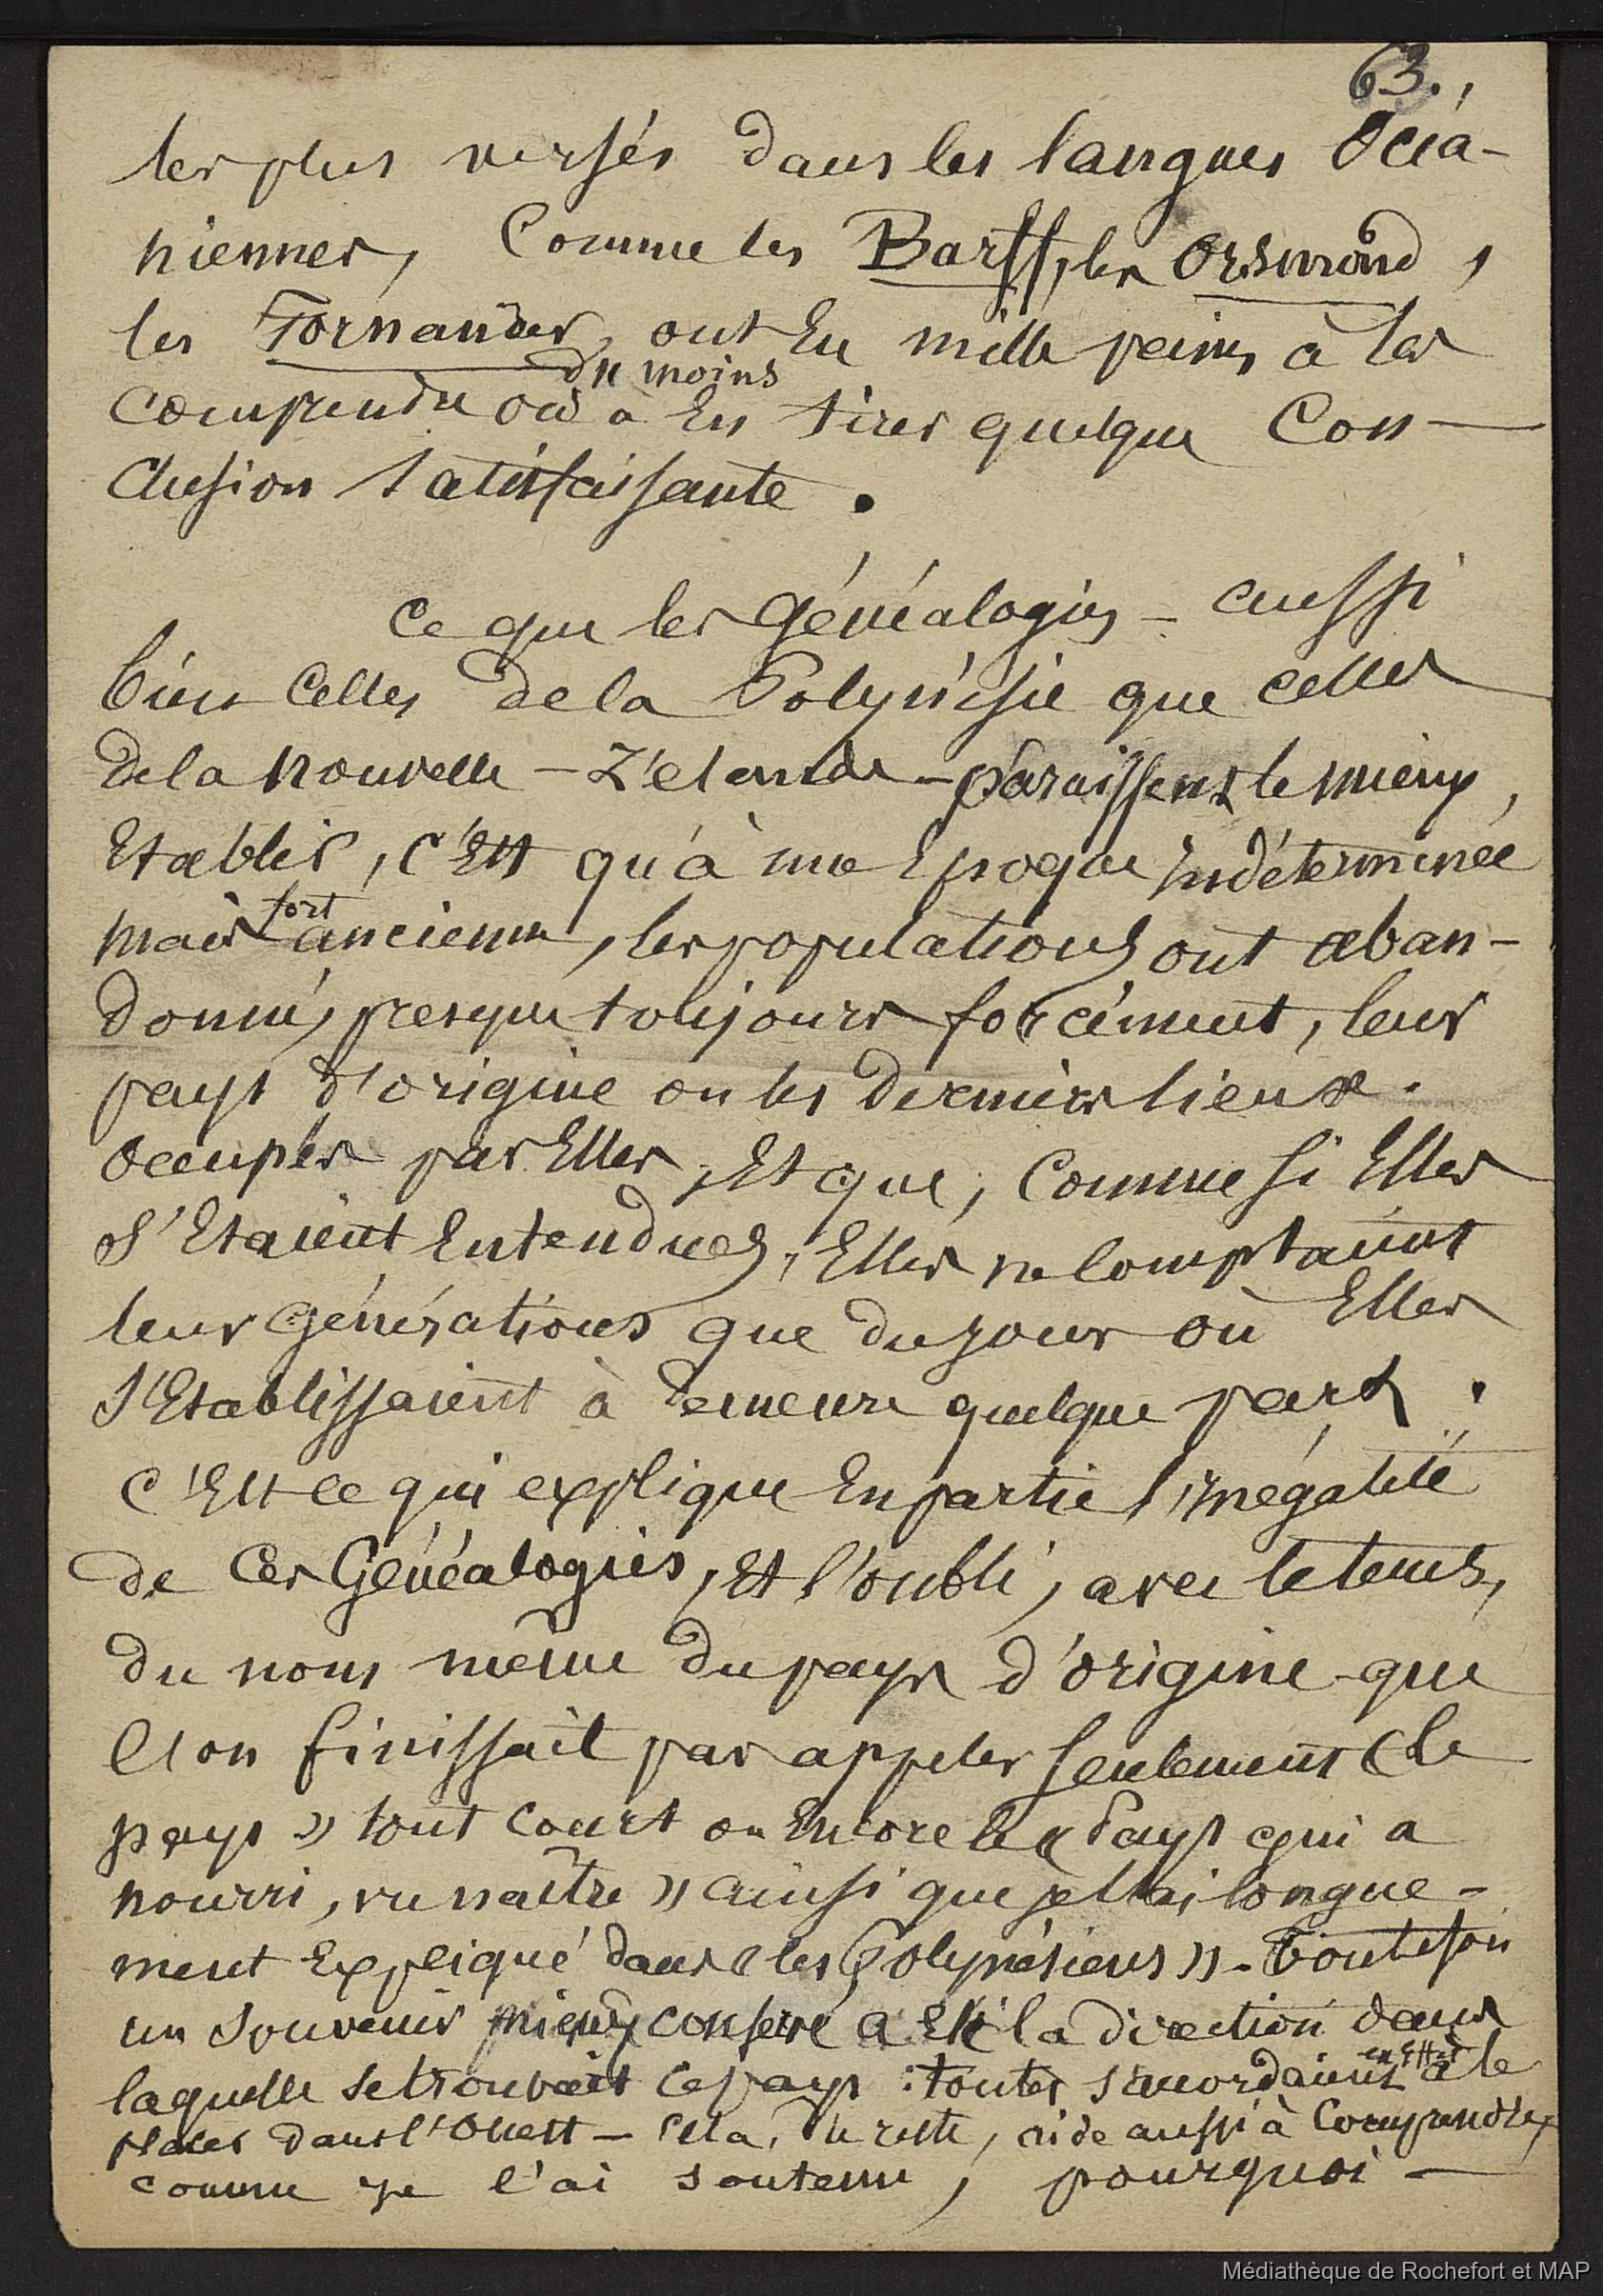 63.,
les plus versés dans les langues Océa-
niennes, comme les Barff, les Orsmond,
les Fornander, ont Eu mille peines à les
du moins
comprendre ou à En tirer quelque Con-
clusion satisfaisante.
Ce que les Généalogies - aussi
bien celles de la Polynésie que celles
de la nouvelle-Zélande - paraissent le mieux,
Etablir, c'Est qu'à une Epoque indéterminée
fort
mais ancienne, les populations ont aban-
donné, presque toujours forcément, leur
pays d'origine ou les derniers lieux
occupés par Elles, Et que, comme si Elles
s'Etaient Entendues, Elles ne comptaient
leurs Générations que du jour où Elles
s'Etablissaient à demeure quelque part.
C'Est ce qui explique En partie l'inégalité
de ces Généalogies, Et l'oubli, avec le tems,
du nom même du pays d'origine que
l'on finissait par appeler seulement « le
pays » tout court ou Encore le « Pays qui a
nourri, vu naître » ainsi que je l'ai longue-
ment Expliqué dans « les Polynésiens ». Toutefois
un souvenir mieux conservé a Eté la direction dans
laquelle se trouvait ce pays : toutes s'accordaient
en Effet
à le
placer dans l'Ouest - Cela, du reste, aide aussi à Comprendre,
comme je l'ai soutenu, pourquoi -
Médiathèque de Rochefort et MAP